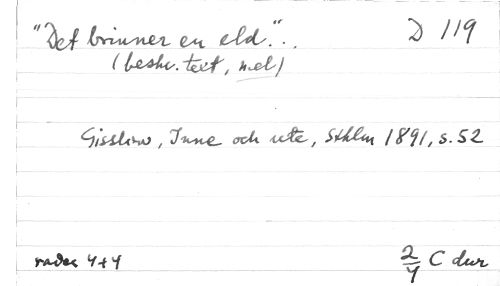 "Det brinner en eld."... D 119
(beskr. text, mel)
Gisslow, Inne och ute, Sthlm 1891, s. 52
rader 4+4 2/4 C dur